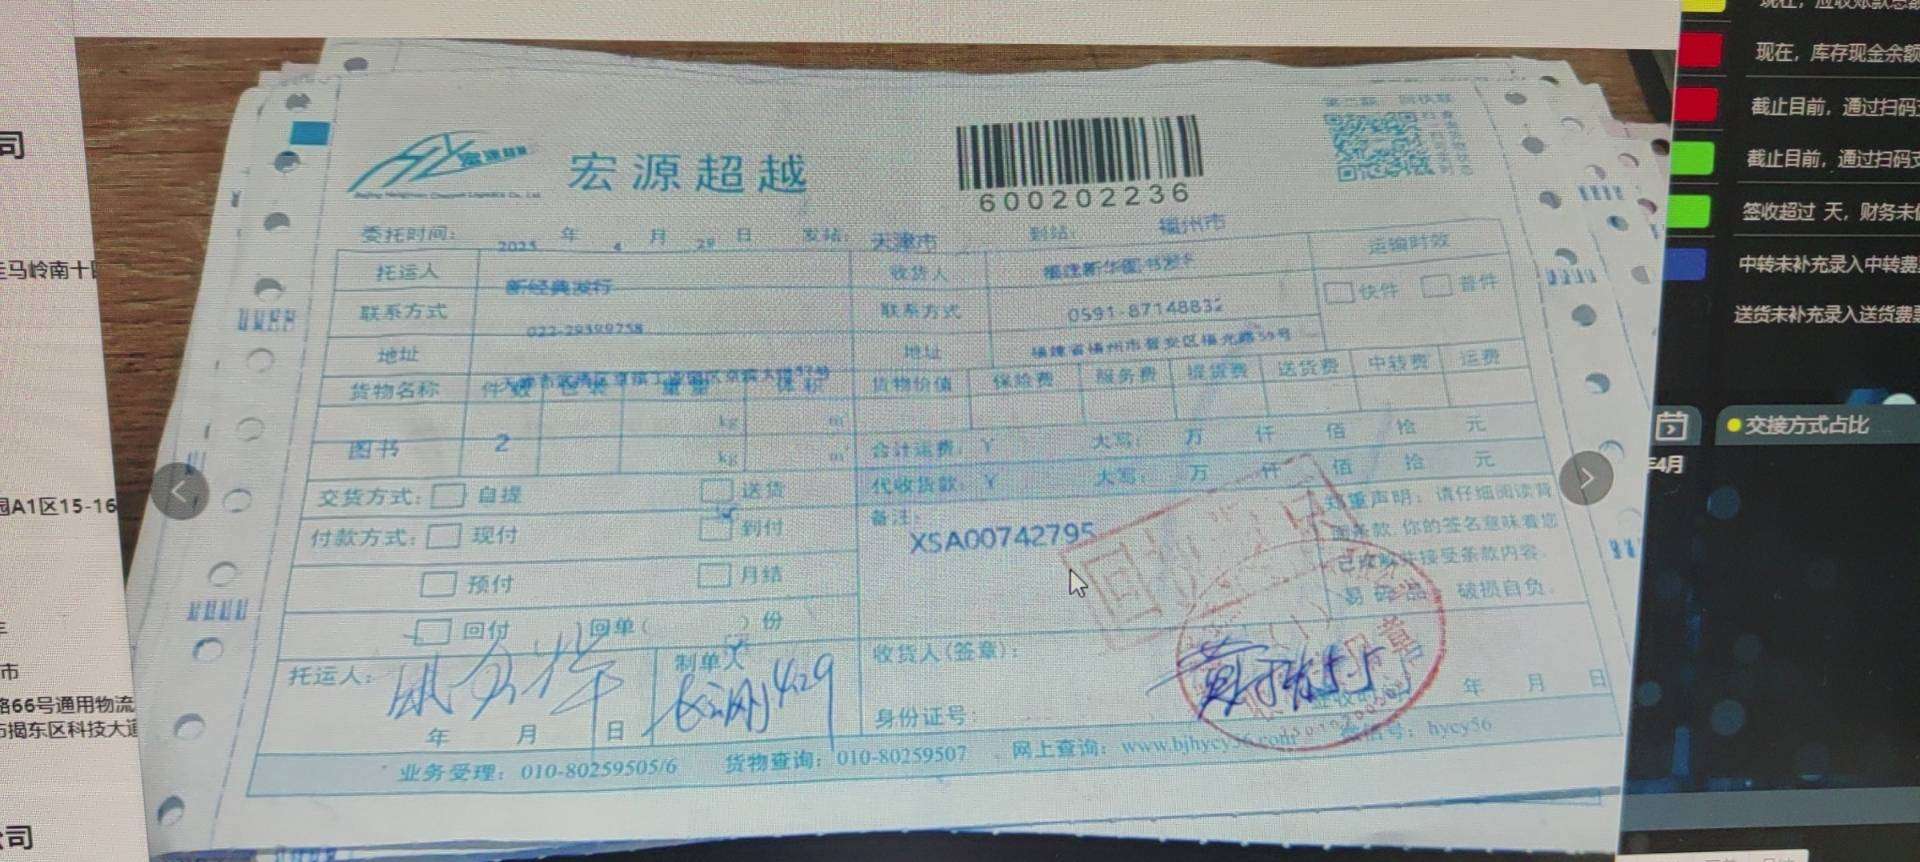 宏源超越
600202236
委托时间: 2025 年 4 月 29 日 发站: 天津市 到站: 福州市
托运人 新经典发行 收货人 福建新华图书发 运输时效
联系方式 022-29399758 联系方式 0591-87148832 快件 普件
地址 地址 福建省福州市晋安区福光路59号
货物名称 件数 包装 重量 体积 货物价值 保险费 服务费 提货费 送货费 中转费 运费
kg m³
图书 2 kg m³
合计运费: ¥ 大写: 万 仟 佰 拾 元
代收货款: ¥ 大写: 万 仟 佰 拾 元
交货方式: 自提 送货
付款方式: 现付 到付
预付 月结
回付 回单( )份
备注: XSA00742795
郑重声明: 请仔细阅读背
面条款, 你的签名意味着您
已 并接受条款内容.
易碎品 破损自负.
托运人: 年 月 日
制单人 4.29
收货人(签章):
身份证号: 年 月 日
业务受理: 010-80259505/6 货物查询: 010-80259507 网上查询: www.bjhycy56.com 微信号: hycy56
现在, 应收账款总额
现在, 库存现金余额
截止目前, 通过扫码支
截止目前, 通过扫码支
签收超过 天, 财务未
中转未补充录入中转费
送货未补充录入送货费
交接方式占比
年4月
司
马岭南十
园A1区15-16
市
路66号通用物流
揭东区科技大道
公司